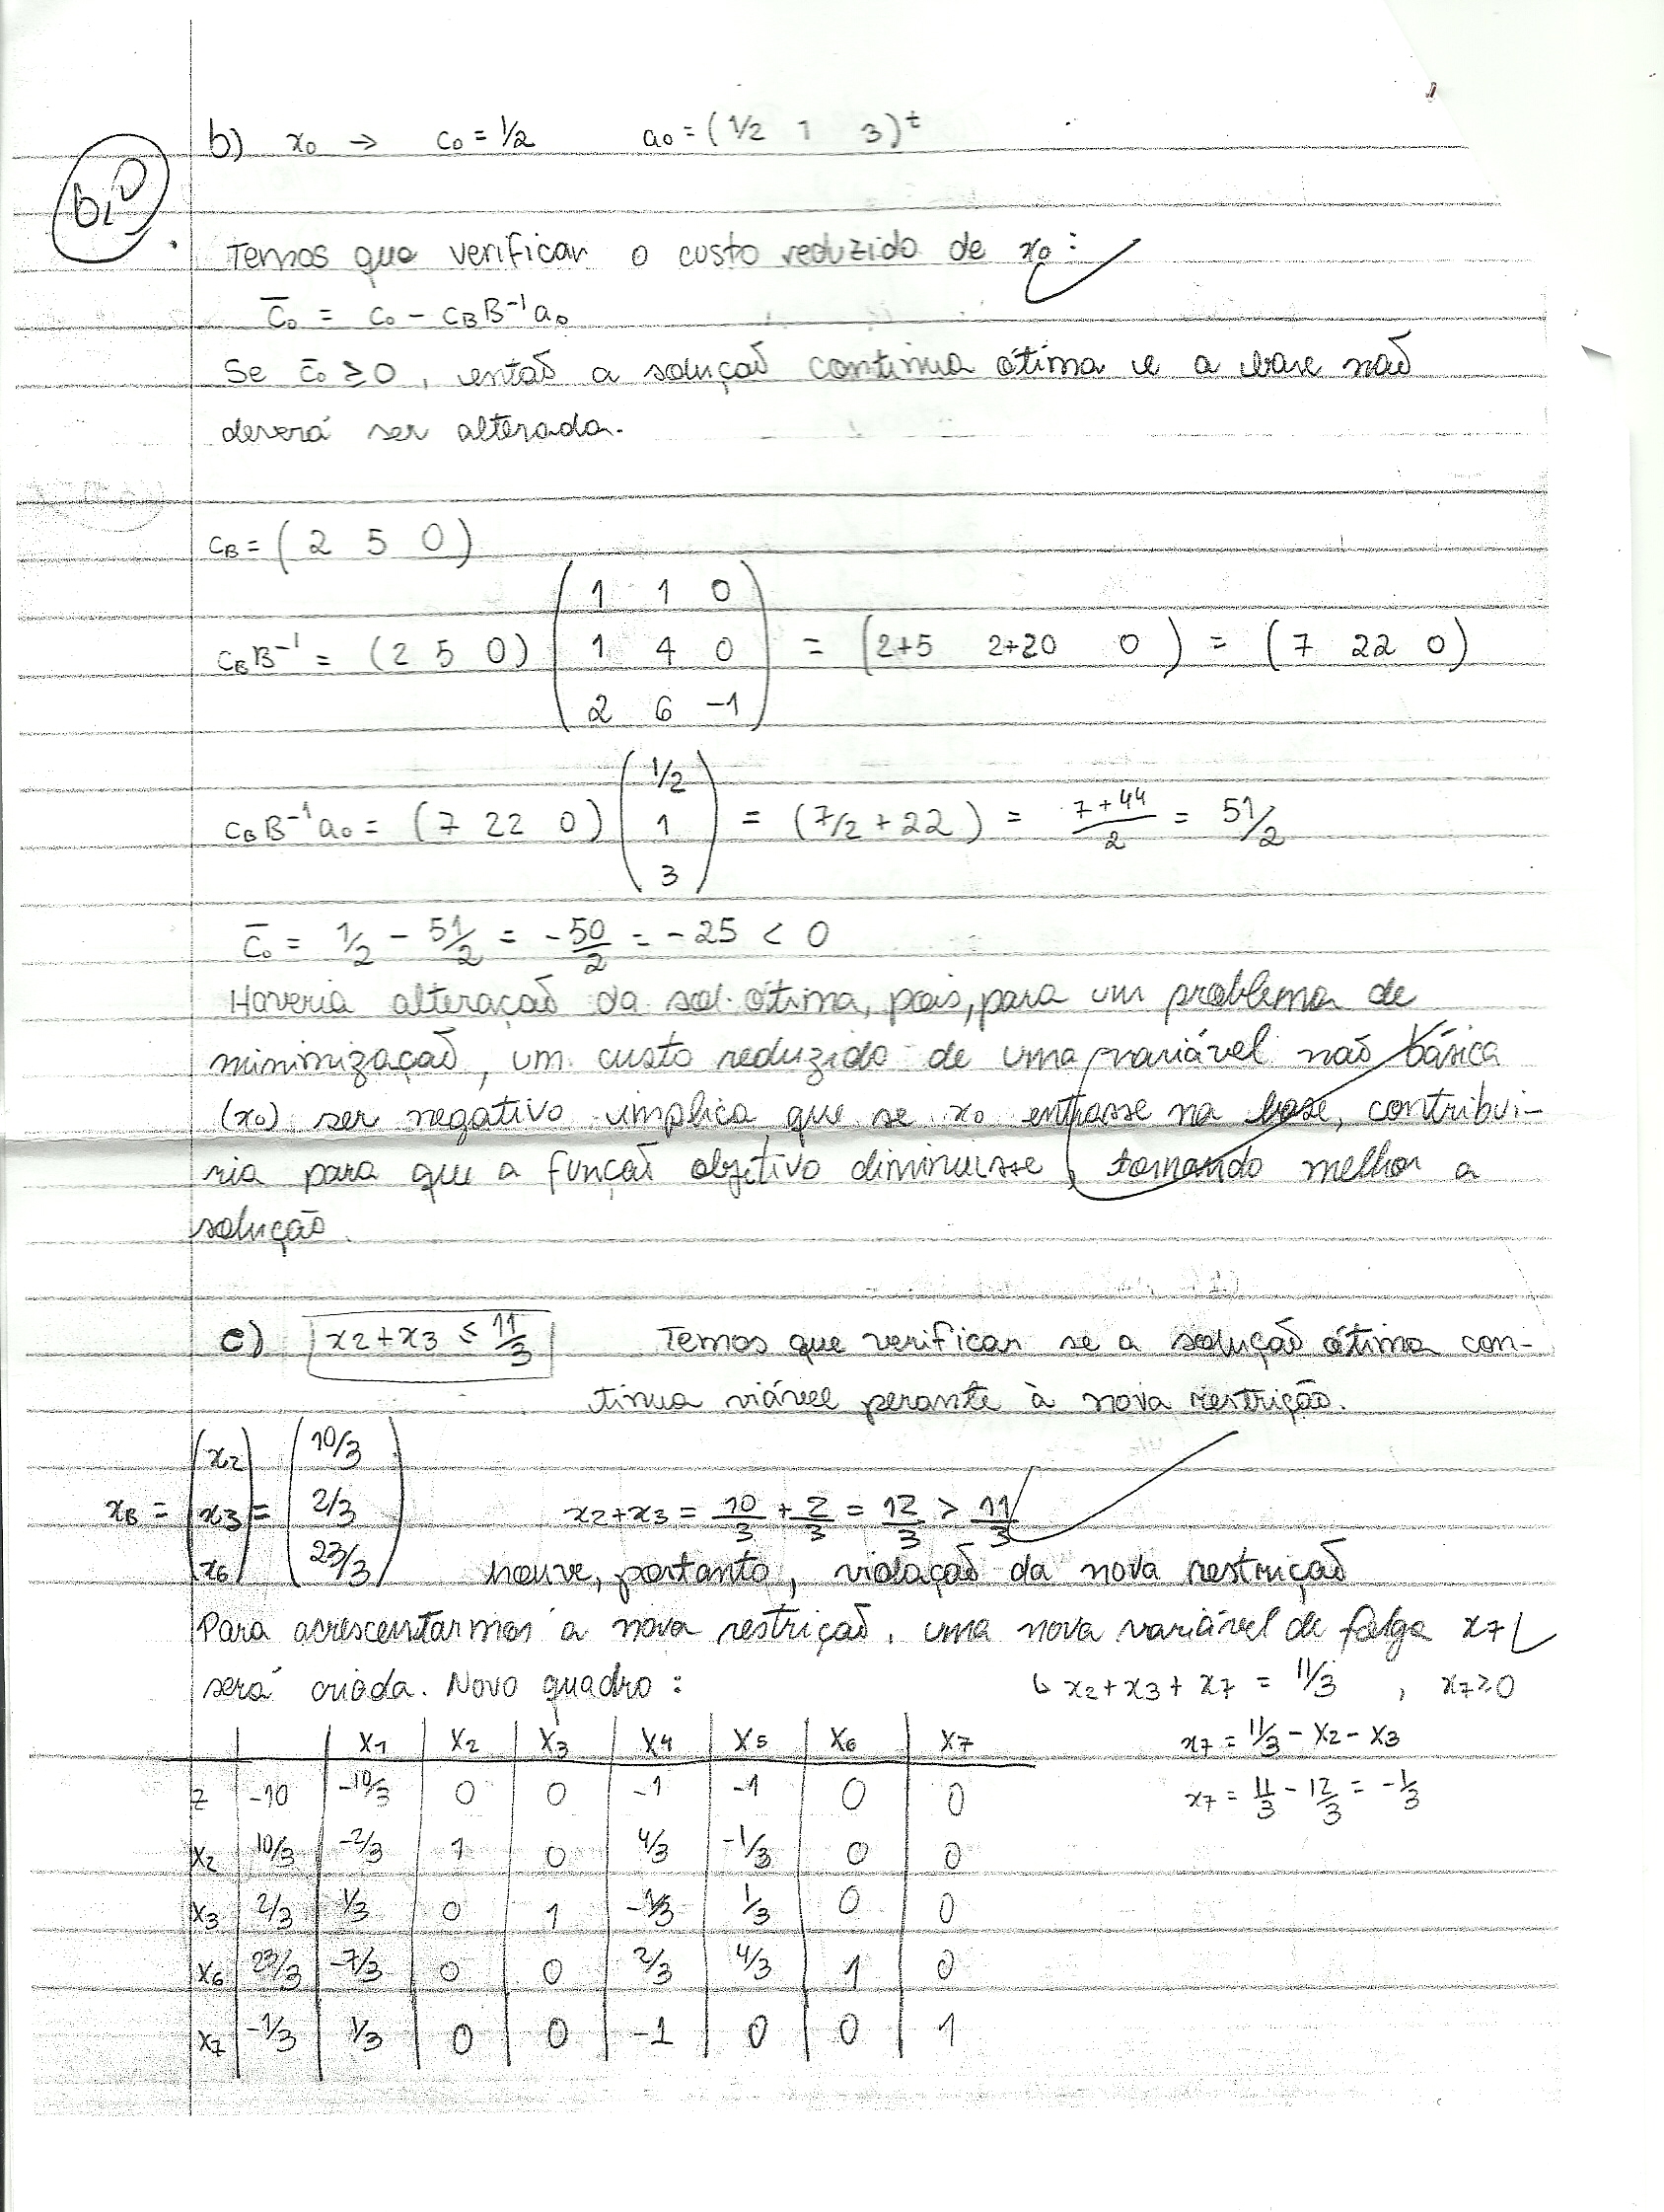 b) x₀ → c₀ = 1/2 a₀ = (1/2 1 3)ᵗ
Temos que verificar o custo reduzido de x₀:
c̄₀ = c₀ - c_B B⁻¹ a₀
Se c̄₀ ≥ 0, então a solução continua ótima e a base não
deverá ser alterada.
c_B = (2 5 0)
c_B B⁻¹ = (2 5 0) (1 1 0
1 4 0
2 6 -1) = (2+5 2+20 0) = (7 22 0)
c_B B⁻¹ a₀ = (7 22 0) (1/2
1
3) = (7/2 + 22) = (7+44)/2 = 51/2
c̄₀ = 1/2 - 51/2 = -50/2 = -25 < 0
Haveria alteração da sol. ótima, pois, para um problema de
minimização, um custo reduzido de uma variável não básica
(x₀) ser negativo implica que se x₀ entrasse na base, contribui-
ria para que a função objetivo diminuisse, tornando melhor a
solução.
c) x2+x3 ≤ 11/3 Temos que verificar se a solução ótima con-
tinua viável perante à nova restrição.
x_B = (x2
x3
x6) = (10/3
2/3
23/3) x2+x3 = 10/3 + 2/3 = 12/3 > 11/3
houve, portanto, violação da nova restrição
Para acrescentarmos a nova restrição, uma nova variável de folga x7
será criada. Novo quadro: ↳ x2+x3+x7 = 11/3 , x7≥0
x1 x2 x3 x4 x5 x6 x7 x7 = 11/3 - x2 - x3
z -10 -10/3 0 0 -1 -1 0 0 x7 = 11/3 - 12/3 = -1/3
x2 10/3 -2/3 1 0 4/3 -1/3 0 0
x3 2/3 1/3 0 1 -1/3 1/3 0 0
x6 23/3 -7/3 0 0 2/3 4/3 1 0
x7 -1/3 1/3 0 0 -1 0 0 1